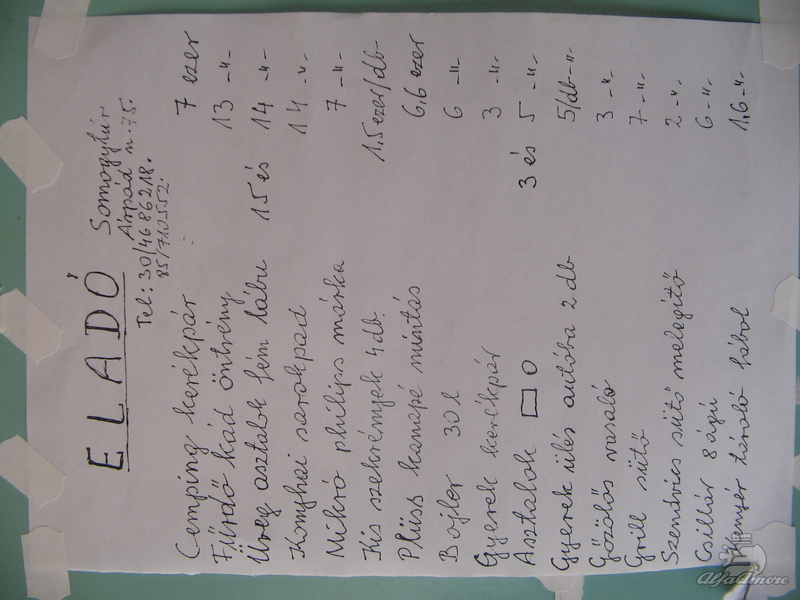 ELADÓ
Somogytúr
Árpád u. 75.
Tel: 30/4686218.
85/710552.
Cemping kerékpár 7 ezer
Fürdő kád öntvény 13 -"-
Üveg asztalk fém lábu 15 és 14 -"-
Konyhai sarokpad 14 -"-
Mikró philips márka 7 -"-
Kis szekrények 4 db. 1,5 ezer/db-
Plüss kanapé mintás 6,6 ezer
Bojler 30 l 6 -"-
Gyerek kerékpár 3 -"-
Asztalok □ O 3 és 5 -"-
Gyerek ülés autóba 2 db 5/db-"-
Gőzölős vasaló 3 -"-
Grill sütő 7 -"-
Szendvics sütő melegítő 2 -"-
Csillár 8 ágú 6 -"-
Kenyér tároló fábol 1,6 -"-
AlfaAmore